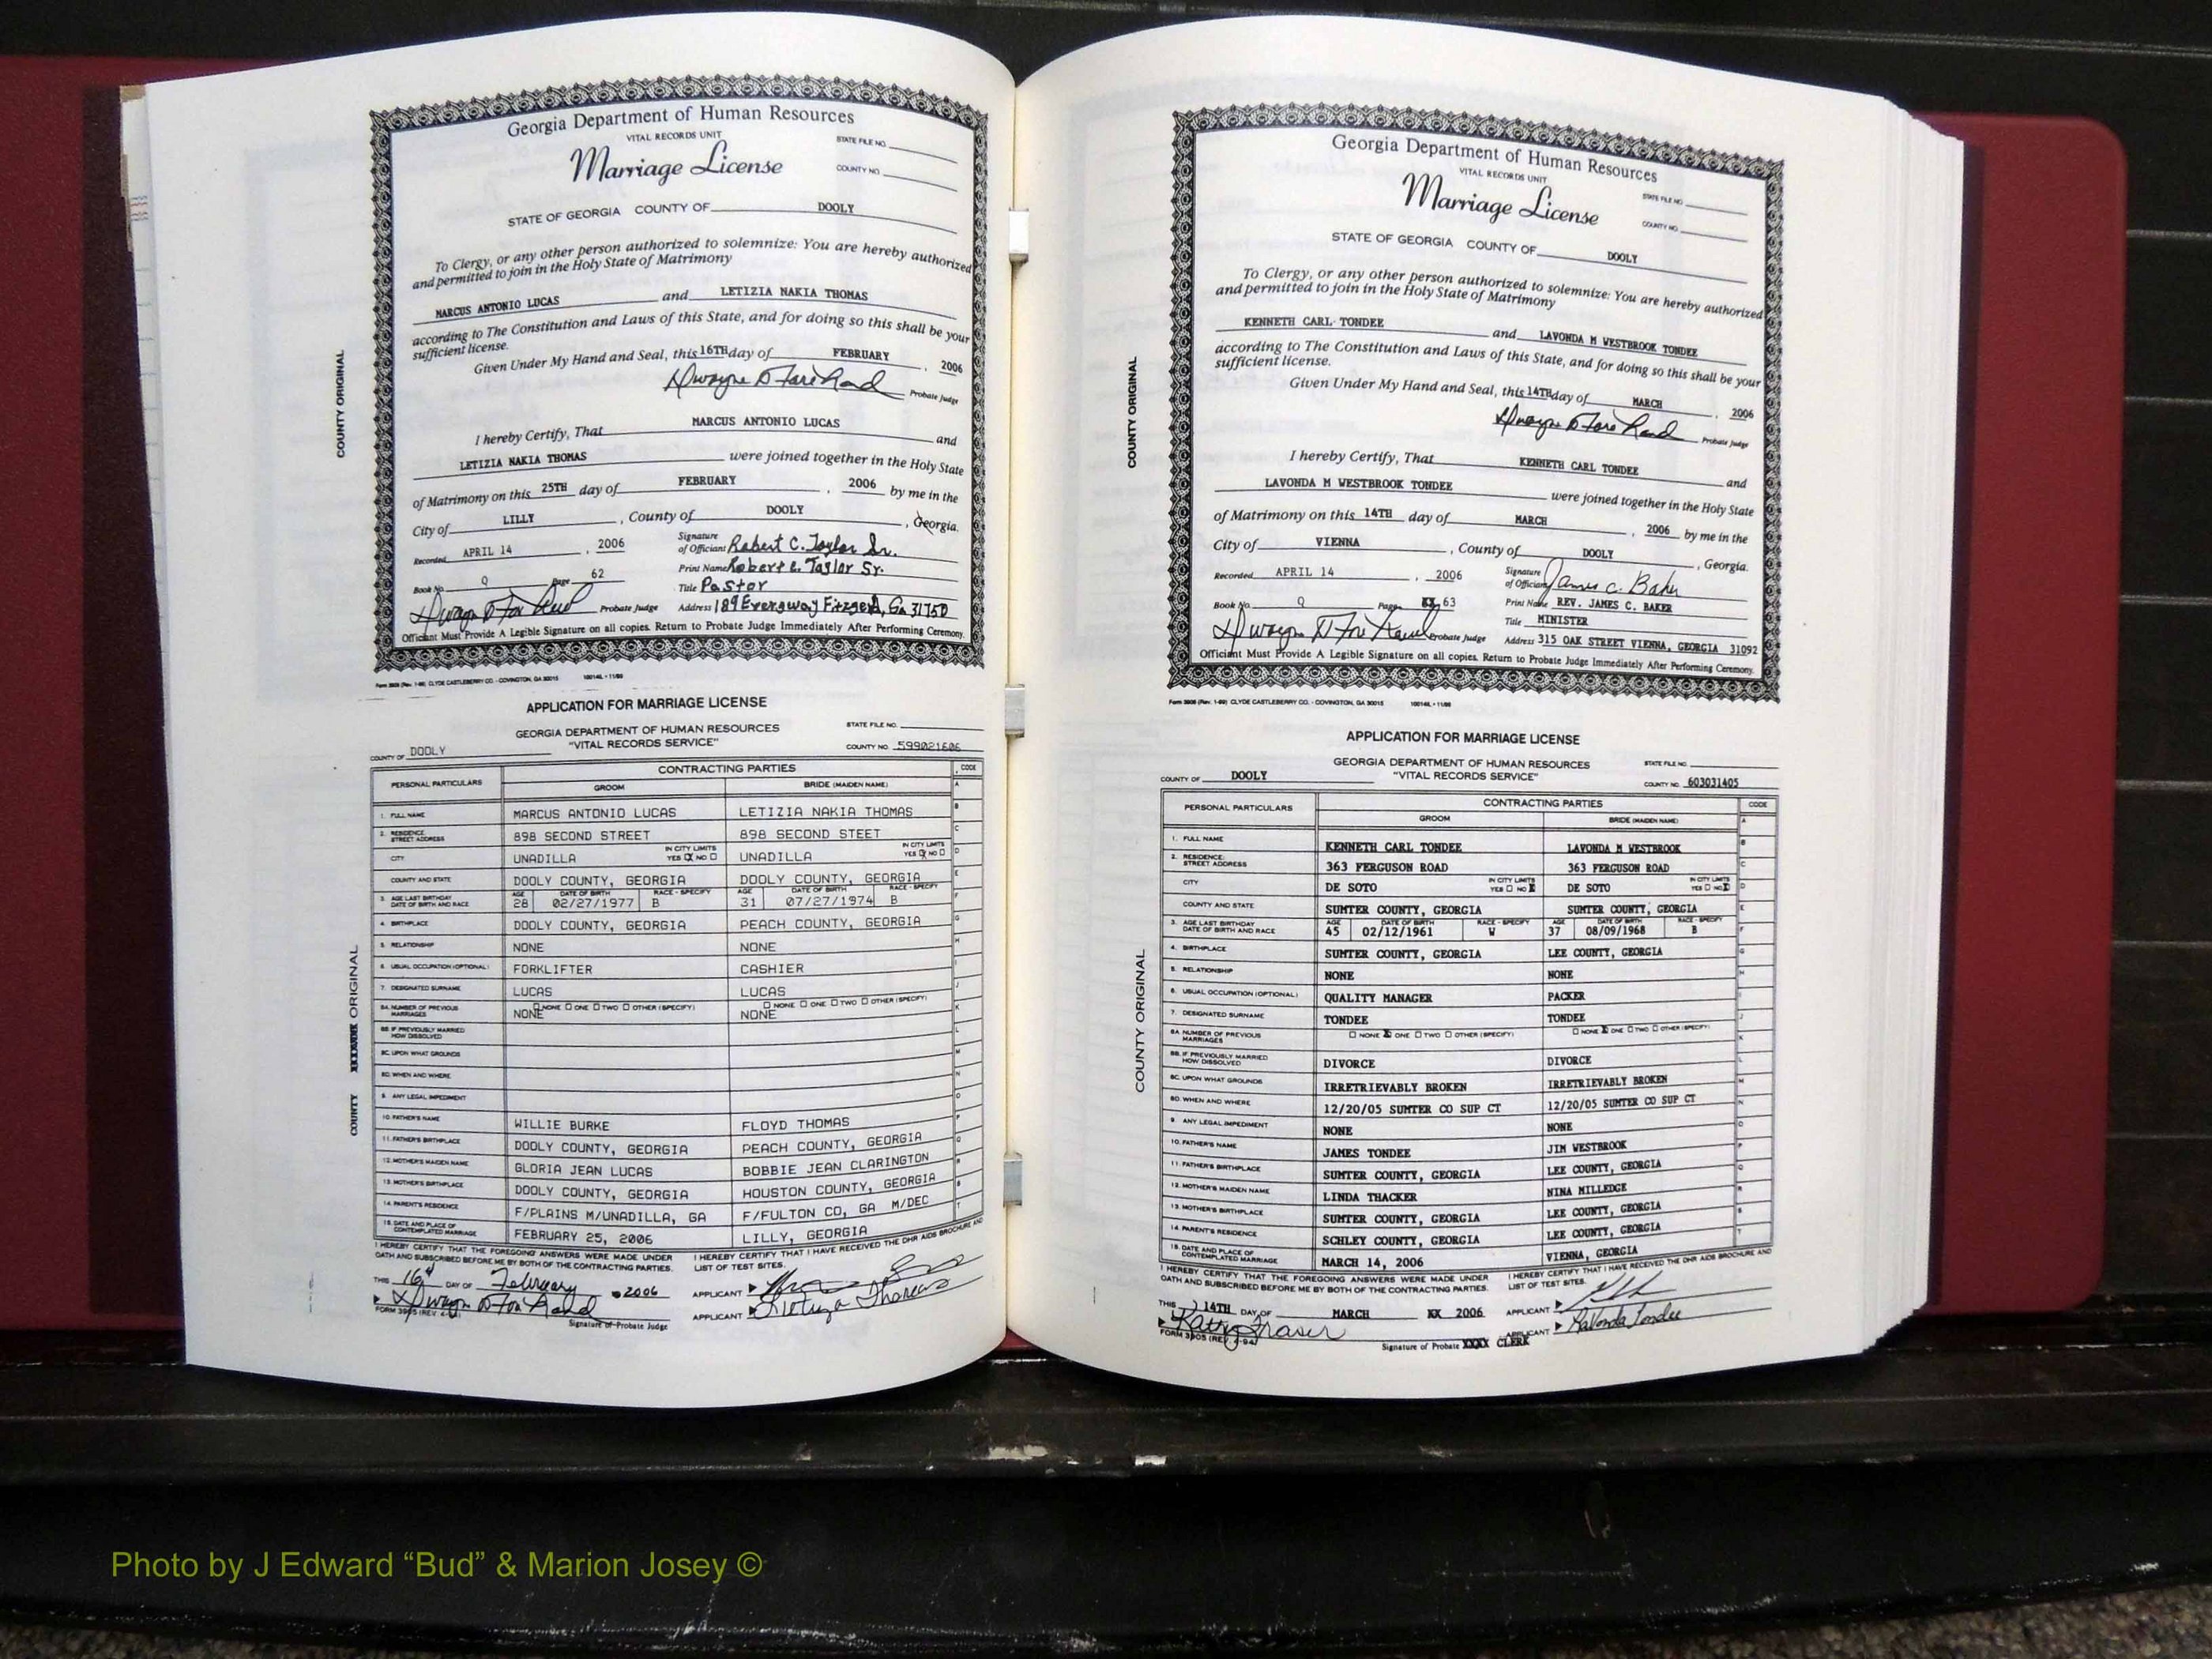 Georgia Department of Human Resources
VITAL RECORDS UNIT
STATE FILE NO.
Marriage License
COUNTY NO.
STATE OF GEORGIA COUNTY OF DOOLY
To Clergy, or any other person authorized to solemnize: You are hereby authorized
and permitted to join in the Holy State of Matrimony
MARCUS ANTONIO LUCAS and LETIZIA NAKIA THOMAS
according to The Constitution and Laws of this State, and for doing so this shall be your
sufficient license.
Given Under My Hand and Seal, this 16TH day of FEBRUARY, 2006
Probate Judge
I hereby Certify, That MARCUS ANTONIO LUCAS and
LETIZIA NAKIA THOMAS were joined together in the Holy State
of Matrimony on this 25TH day of FEBRUARY, 2006 by me in the
City of LILLY, County of DOOLY, Georgia.
Recorded APRIL 14, 2006
Signature
of Officiant Robert C. Taylor Sr.
Print Name Robert C. Taylor Sr.
Book No. Q Page 62
Title Pastor
Probate Judge Address 189 Evergway Fitzgerd, Ga 31750
Officiant Must Provide A Legible Signature on all copies. Return to Probate Judge Immediately After Performing Ceremony.
Form 3908 (Rev. 1-99) CLYDE CASTLEBERRY CO. - COVINGTON, GA 30015
COUNTY ORIGINAL
APPLICATION FOR MARRIAGE LICENSE
GEORGIA DEPARTMENT OF HUMAN RESOURCES
"VITAL RECORDS SERVICE"
STATE FILE NO.
COUNTY OF DOOLY
COUNTY NO. 599021606
PERSONAL PARTICULARS CONTRACTING PARTIES CODE
GROOM BRIDE (MAIDEN NAME)
1. FULL NAME MARCUS ANTONIO LUCAS LETIZIA NAKIA THOMAS
2. RESIDENCE: STREET ADDRESS 898 SECOND STREET 898 SECOND STEET
CITY UNADILLA IN CITY LIMITS YES X NO UNADILLA IN CITY LIMITS YES X NO
COUNTY AND STATE DOOLY COUNTY, GEORGIA DOOLY COUNTY, GEORGIA
3. AGE LAST BIRTHDAY DATE OF BIRTH AND RACE AGE 28 DATE OF BIRTH 02/27/1977 RACE - SPECIFY B AGE 31 DATE OF BIRTH 07/27/1974 RACE - SPECIFY B
4. BIRTHPLACE DOOLY COUNTY, GEORGIA PEACH COUNTY, GEORGIA
5. RELATIONSHIP NONE NONE
6. USUAL OCCUPATION (OPTIONAL) FORKLIFTER CASHIER
7. DESIGNATED SURNAME LUCAS LUCAS
8A. NUMBER OF PREVIOUS MARRIAGES NONE ONE TWO OTHER (SPECIFY) NONE NONE ONE TWO OTHER (SPECIFY) NONE
8B. IF PREVIOUSLY MARRIED HOW DISSOLVED
8C. UPON WHAT GROUNDS
8D. WHEN AND WHERE
9. ANY LEGAL IMPEDIMENT
10. FATHER'S NAME WILLIE BURKE FLOYD THOMAS
11. FATHER'S BIRTHPLACE DOOLY COUNTY, GEORGIA PEACH COUNTY, GEORGIA
12. MOTHER'S MAIDEN NAME GLORIA JEAN LUCAS BOBBIE JEAN CLARINGTON
13. MOTHER'S BIRTHPLACE DOOLY COUNTY, GEORGIA HOUSTON COUNTY, GEORGIA
14. PARENT'S RESIDENCE F/PLAINS M/UNADILLA, GA F/FULTON CO, GA M/DEC
15. DATE AND PLACE OF CONTEMPLATED MARRIAGE FEBRUARY 25, 2006 LILLY, GEORGIA
I HEREBY CERTIFY THAT THE FOREGOING ANSWERS WERE MADE UNDER
OATH AND SUBSCRIBED BEFORE ME BY BOTH OF THE CONTRACTING PARTIES.
I HEREBY CERTIFY THAT I HAVE RECEIVED THE DHR AIDS BROCHURE AND
LIST OF TEST SITES.
THIS 16th DAY OF February 2006
APPLICANT
APPLICANT
FORM 3905 (REV. 4-94)
Signature of Probate Judge
COUNTY ORIGINAL
Georgia Department of Human Resources
VITAL RECORDS UNIT
STATE FILE NO.
Marriage License
COUNTY NO.
STATE OF GEORGIA COUNTY OF DOOLY
To Clergy, or any other person authorized to solemnize: You are hereby authorized
and permitted to join in the Holy State of Matrimony
KENNETH CARL TONDEE and LAVONDA M WESTBROOK TONDEE
according to The Constitution and Laws of this State, and for doing so this shall be your
sufficient license.
Given Under My Hand and Seal, this 14TH day of MARCH, 2006
Probate Judge
I hereby Certify, That KENNETH CARL TONDEE and
LAVONDA M WESTBROOK TONDEE were joined together in the Holy State
of Matrimony on this 14TH day of MARCH, 2006 by me in the
City of VIENNA, County of DOOLY, Georgia.
Recorded APRIL 14, 2006
Signature
of Officiant James C. Baker
Book No. Q Page 63
Print Name REV. JAMES C. BAKER
Title MINISTER
Probate Judge Address 315 OAK STREET VIENNA, GEORGIA 31092
Officiant Must Provide A Legible Signature on all copies. Return to Probate Judge Immediately After Performing Ceremony.
Form 3908 (Rev. 1-99) CLYDE CASTLEBERRY CO. - COVINGTON, GA 30015
COUNTY ORIGINAL
APPLICATION FOR MARRIAGE LICENSE
GEORGIA DEPARTMENT OF HUMAN RESOURCES
"VITAL RECORDS SERVICE"
STATE FILE NO.
COUNTY OF DOOLY
COUNTY NO. 603031405
PERSONAL PARTICULARS CONTRACTING PARTIES CODE
GROOM BRIDE (MAIDEN NAME)
1. FULL NAME KENNETH CARL TONDEE LAVONDA M WESTBROOK
2. RESIDENCE: STREET ADDRESS 363 FERGUSON ROAD 363 FERGUSON ROAD
CITY DE SOTO IN CITY LIMITS YES NO X DE SOTO IN CITY LIMITS YES NO X
COUNTY AND STATE SUMTER COUNTY, GEORGIA SUMTER COUNTY, GEORGIA
3. AGE LAST BIRTHDAY DATE OF BIRTH AND RACE AGE 45 DATE OF BIRTH 02/12/1961 RACE - SPECIFY W AGE 37 DATE OF BIRTH 08/09/1968 RACE - SPECIFY B
4. BIRTHPLACE SUMTER COUNTY, GEORGIA LEE COUNTY, GEORGIA
5. RELATIONSHIP NONE NONE
6. USUAL OCCUPATION (OPTIONAL) QUALITY MANAGER PACKER
7. DESIGNATED SURNAME TONDEE TONDEE
8A NUMBER OF PREVIOUS MARRIAGES NONE X ONE TWO OTHER (SPECIFY) NONE X ONE TWO OTHER (SPECIFY)
8B. IF PREVIOUSLY MARRIED HOW DISSOLVED DIVORCE DIVORCE
8C. UPON WHAT GROUNDS IRRETRIEVABLY BROKEN IRRETRIEVABLY BROKEN
8D. WHEN AND WHERE 12/20/05 SUMTER CO SUP CT 12/20/05 SUMTER CO SUP CT
9. ANY LEGAL IMPEDIMENT NONE NONE
10. FATHER'S NAME JAMES TONDEE JIM WESTBROOK
11. FATHER'S BIRTHPLACE SUMTER COUNTY, GEORGIA LEE COUNTY, GEORGIA
12. MOTHER'S MAIDEN NAME LINDA THACKER NINA MILLEDGE
13. MOTHER'S BIRTHPLACE SUMTER COUNTY, GEORGIA LEE COUNTY, GEORGIA
14. PARENT'S RESIDENCE SCHLEY COUNTY, GEORGIA LEE COUNTY, GEORGIA
15. DATE AND PLACE OF CONTEMPLATED MARRIAGE MARCH 14, 2006 VIENNA, GEORGIA
I HEREBY CERTIFY THAT THE FOREGOING ANSWERS WERE MADE UNDER
OATH AND SUBSCRIBED BEFORE ME BY BOTH OF THE CONTRACTING PARTIES.
I HEREBY CERTIFY THAT I HAVE RECEIVED THE DHR AIDS BROCHURE AND
LIST OF TEST SITES.
THIS 14TH DAY OF MARCH XX 2006
APPLICANT
Kathy Fraser
APPLICANT LaVonda Tondee
FORM 3905 (REV. 4-94)
Signature of Probate XXXX CLERK
COUNTY ORIGINAL
Photo by J Edward “Bud” & Marion Josey ©